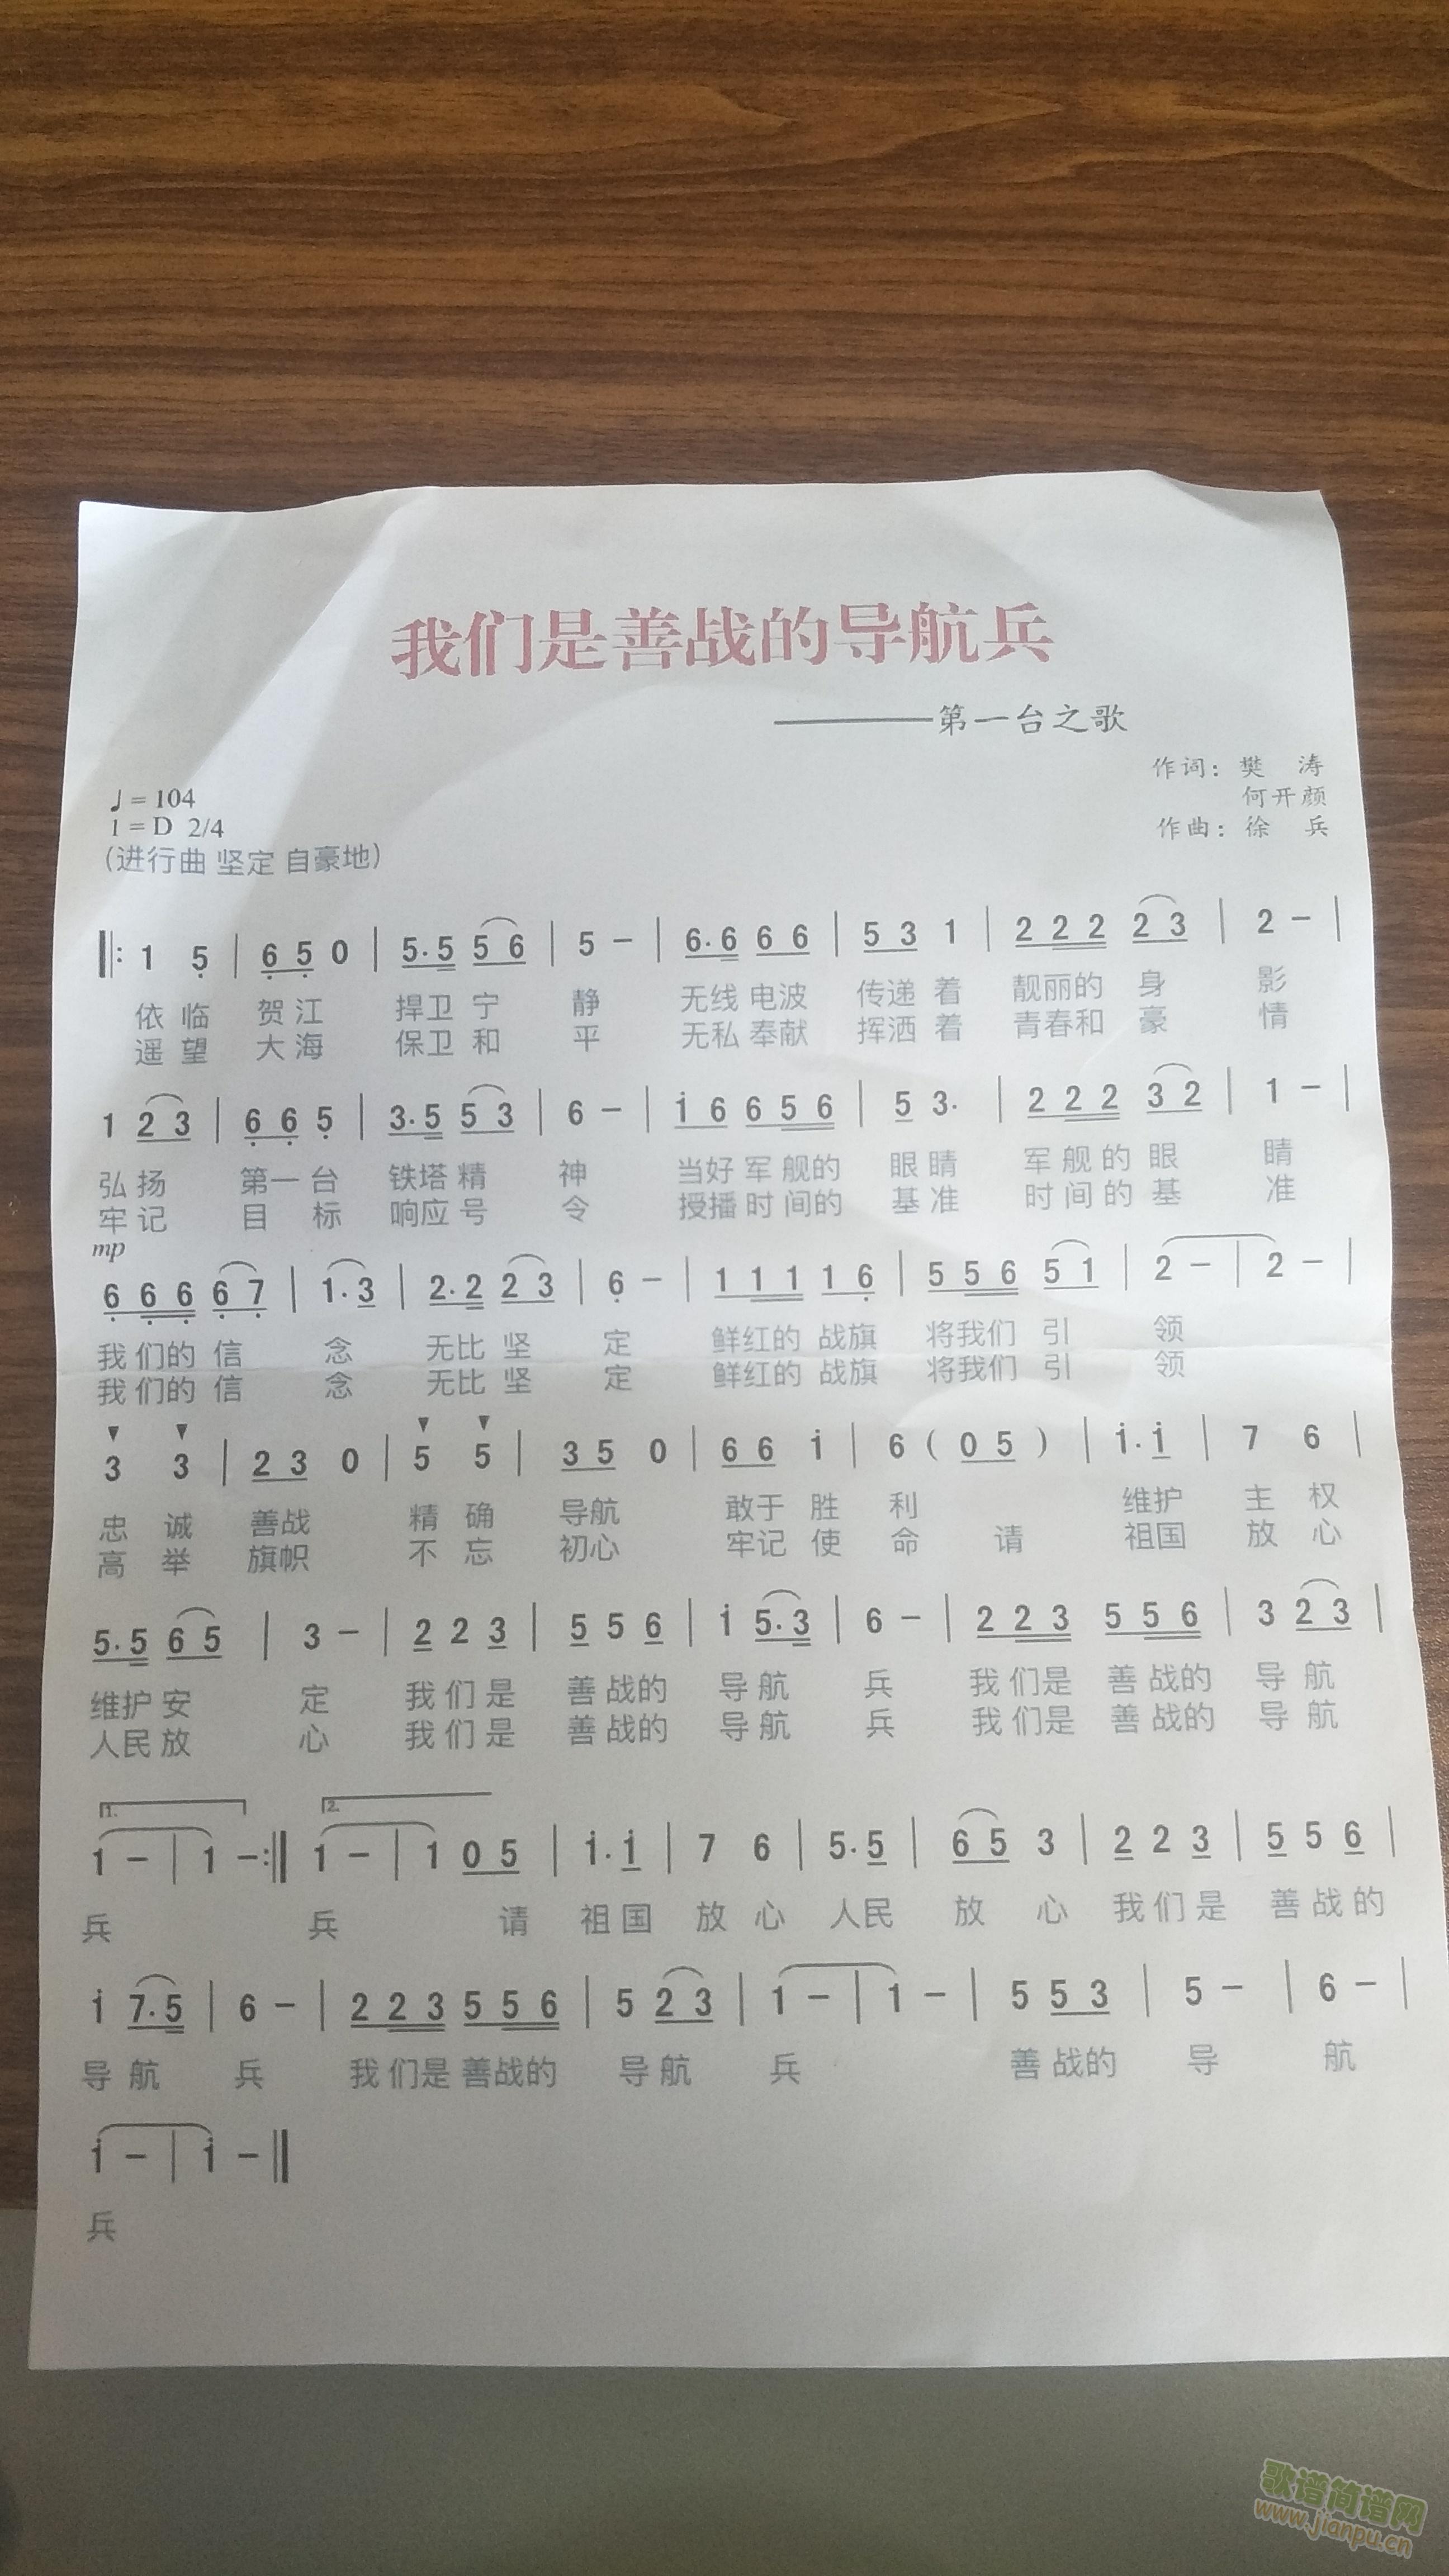 我们是善战的导航兵
————第一台之歌
作词：樊 涛
何开颜
作曲：徐 兵
♩= 104
1 = D 2/4
（进行曲 坚定 自豪地）
‖: 1 5̣ | 6̣ 5̣ 0 | 5·5 5 6 | 5 － | 6·6 6 6 | 5 3 1 | 2 2 2 2 3 | 2 － |
依 临 贺 江 捍卫 宁 静 无线 电波 传递 着 靓丽的 身 影
遥 望 大 海 保卫 和 平 无私 奉献 挥洒 着 青春和 豪 情
1 2 3 | 6̣ 6̣ 5̣ | 3·5 5 3 | 6 － | i 6 6 5 6 | 5 3· | 2 2 2 3 2 | 1 － |
弘 扬 第一 台 铁塔 精 神 当好 军 舰的 眼 睛 军 舰 的 眼 睛
牢 记 目 标 响应 号 令 授播 时 间的 基 准 时 间 的 基 准
mp
6̣ 6̣ 6̣ 6̣ 7̣ | 1·3 | 2·2 2 3 | 6̣ － | 1 1 1 1 6̣ | 5 5 6 5 1 | 2 － | 2 － |
我 们的 信 念 无比 坚 定 鲜红的 战旗 将我们 引 领
我 们的 信 念 无比 坚 定 鲜红的 战旗 将我们 引 领
▼ ▼ ▼ ▼
3 3 | 2 3 0 | 5 5 | 3 5 0 | 6 6 i | 6 ( 0 5 ) | i·i | 7 6 |
忠 诚 善战 精 确 导航 敢于 胜 利 维护 主 权
高 举 旗帜 不 忘 初心 牢记 使 命 请 祖国 放 心
5·5 6 5 | 3 － | 2 2 3 | 5 5 6 | i 5·3 | 6 － | 2 2 3 5 5 6 | 3 2 3 |
维护 安 定 我 们 是 善 战的 导 航 兵 我 们是 善 战的 导 航
人民 放 心 我 们 是 善 战的 导 航 兵 我 们是 善 战的 导 航
1. 2.
1 － | 1 －:‖ 1 － | 1 0 5 | i·i | 7 6 | 5·5 | 6 5 3 | 2 2 3 | 5 5 6 |
兵 兵 请 祖 国 放 心 人民 放 心 我 们 是 善 战 的
i 7·5 | 6 － | 2 2 3 5 5 6 | 5 2 3 | 1 － | 1 － | 5 5 3 | 5 － | 6 － |
导 航 兵 我 们是 善战的 导 航 兵 善 战的 导 航
i － | i － ‖
兵
歌谱简谱网
www.jianpu.cn